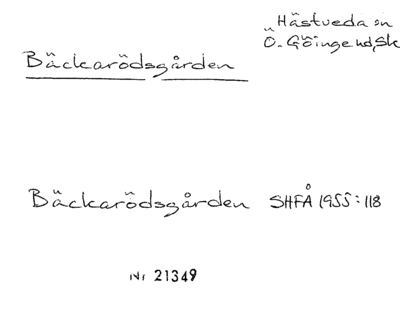 Hästveda sn
Ö. Göinge hd, Sk
Bäckarödsgården
Bäckarödsgården SHFÅ 1955:118
Nr 21349